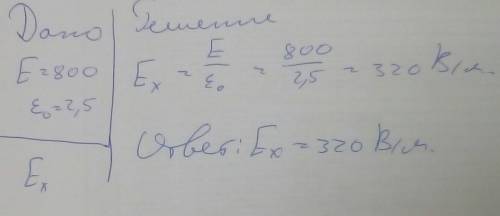 Дано
E = 800
ε₀ = 2,5
Eₓ
Решение
Eₓ = E/ε₀ = 800/2,5 = 320 В/м.
Ответ: Eₓ = 320 В/м.